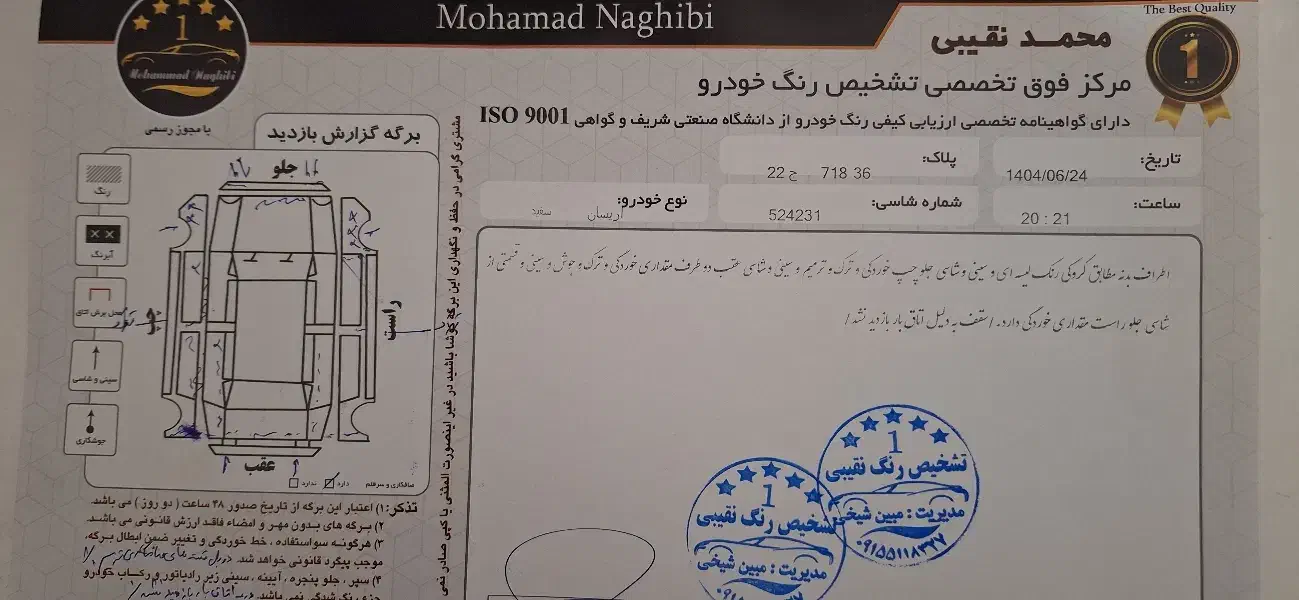 Mohamad Naghibi
The Best Quality
1
محمد نقیبی
مرکز فوق تخصصی تشخیص رنگ خودرو
دارای گواهینامه تخصصی ارزیابی کیفی رنگ خودرو از دانشگاه صنعتی شریف و گواهی ISO 9001
1
Mohammad Naghibi
با مجوز رسمی
تاریخ: 1404/06/24
پلاک: 36 718 ج 22
ساعت: 20 : 21
شماره شاسی: 524231
نوع خودرو: اریسان سفید
اطراف بدنه مطابق کروکی رنگ لیسه ای و سینی و شاسی جلو چپ خوردگی و ترک و ترمیم و سینی و شاسی عقب دو طرف مقداری خوردگی و ترک و جوش و سینی و قسمتی از
شاسی جلو راست مقداری خوردگی دارد. / سقف به دلیل اتاق بار بازدید نشد /
برگه گزارش بازدید
جلو
راست
چپ
عقب
رنگ
آبرنگ
محل برش اتاق
سینی و شاسی
جوشکاری
صافکاری و سرقلم دارد ندارد
تذکر: ۱) اعتبار این برگه از تاریخ صدور ۴۸ ساعت ( دو روز ) می باشد.
۲) برگه های بدون مهر و امضاء فاقد ارزش قانونی می باشد.
۳) هرگونه سواستفاده ، خط خوردگی و تغییر ضمن ابطال برگه،
موجب پیگرد قانونی خواهد شد.
۴) سپر ، جلو پنجره ، آیینه ، سینی زیر رادیاتور و رکاب خودرو
جزء رنگ شدگی نمی باشد.
مشتری گرامی در حفظ و نگهداری این برگه کوشا باشید در غیر اینصورت المثنی یا کپی صادر نمی
1
تشخیص رنگ نقیبی
مدیریت : مبین شیخی
۰۹۱۵۵۱۱۸۳۲۷
1
تشخیص رنگ نقیبی
مدیریت : مبین شیخی